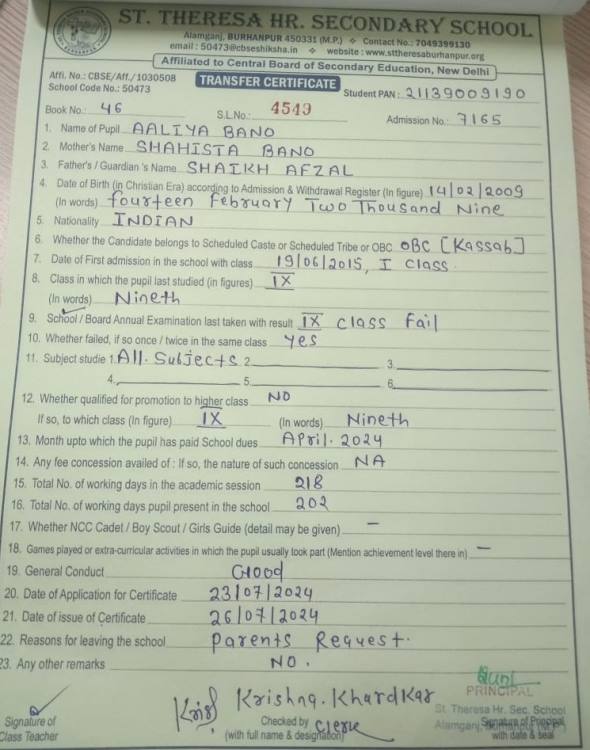 ST. THERESA HR. SECONDARY SCHOOL
Alamganj, BURHANPUR 450331 (M.P.) ❖ Contact No.: 7049399130
email : 50473@cbseshiksha.in ❖ website : www.sttheresaburhanpur.org
Affiliated to Central Board of Secondary Education, New Delhi
Affi. No.: CBSE/Aff./1030508
School Code No.: 50473
TRANSFER CERTIFICATE
Student PAN : 21139009190
Book No.: 46 S.L.No.: 4549 Admission No.: 7165
1. Name of Pupil AALIYA BANO
2. Mother's Name SHAHISTA BANO
3. Father's / Guardian 's Name SHAIKH AFZAL
4. Date of Birth (in Christian Era) according to Admission & Withdrawal Register (In figure) 14/02/2009
(In words) fourteen February Two Thousand Nine
5. Nationality INDIAN
6. Whether the Candidate belongs to Scheduled Caste or Scheduled Tribe or OBC OBC [Kassab]
7. Date of First admission in the school with class 19/06/2015, I Class.
8. Class in which the pupil last studied (in figures) IX
(In words) Nineth
9. School / Board Annual Examination last taken with result IX class Fail
10. Whether failed, if so once / twice in the same class yes
11. Subject studie 1. All. Subjects 2. 3.
4. 5. 6.
12. Whether qualified for promotion to higher class NO
If so, to which class (In figure) IX (In words) Nineth
13. Month upto which the pupil has paid School dues April. 2024
14. Any fee concession availed of : If so, the nature of such concession NA
15. Total No. of working days in the academic session 218
16. Total No. of working days pupil present in the school 202
17. Whether NCC Cadet / Boy Scout / Girls Guide (detail may be given) –
18. Games played or extra-curricular activities in which the pupil usually took part (Mention achievement level there in) –
19. General Conduct Good
20. Date of Application for Certificate 23/07/2024
21. Date of issue of Certificate 26/07/2024
22. Reasons for leaving the school Parents Request.
23. Any other remarks NO.
Krishna. Khardkar
PRINCIPAL
St. Theresa Hr. Sec. School
Alamganj,
Signature of
Class Teacher
Checked by Clerk
(with full name & designation)
Signature of Principal
with date & seal